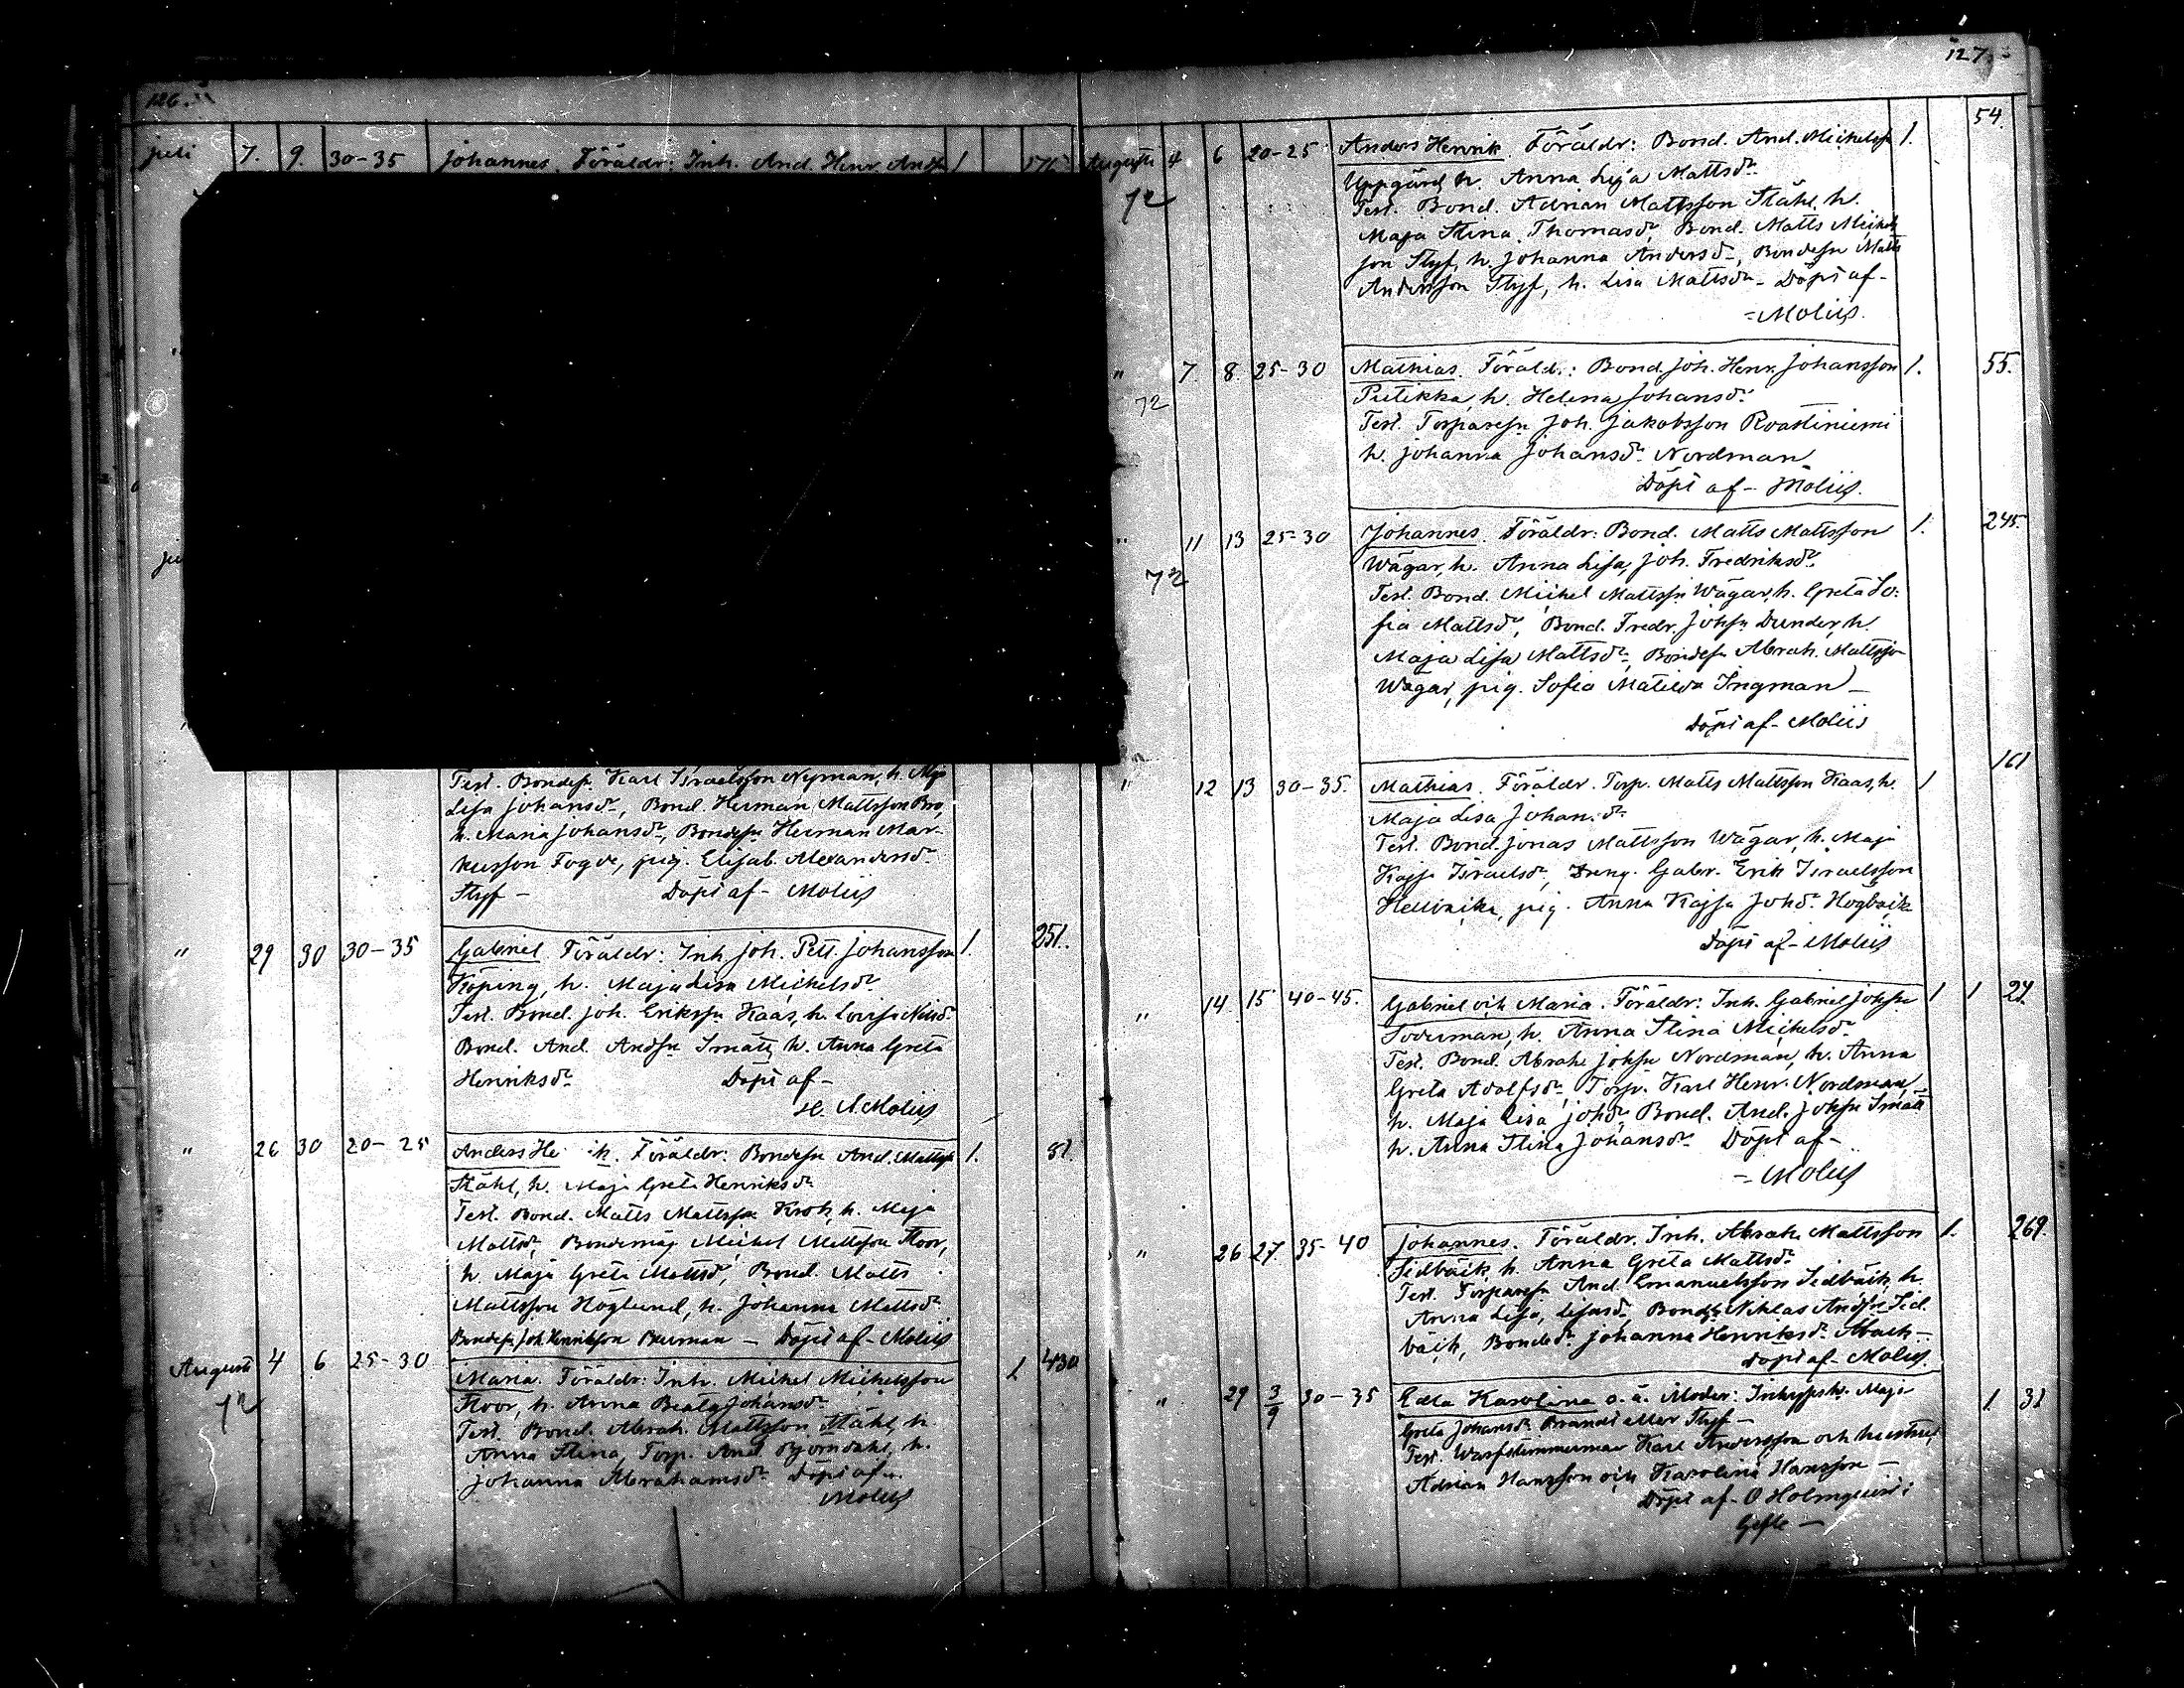 126.
Juli 7. 9. 30-35 Johannes. Föräldr: Inh. And. Henr. Andss. 1
Test. Bondess. Karl Israelsson Nyman, h. Maja
Lisa Johansdr, Bond. Herman Mattsson Bro,
h. Maria Johansdr, Bondesn Herman Mar-
kusson Fogde, pig. Elisab. Alexandersdr
Styf - Döpt af - Moliis
" 29 30 30-35 Gabriel. Föräldr: Inh. Joh. Pett. Johansson 1. 251.
Köping, h. Maja Lisa Michelsdr
Test. Bond. Joh. Erikssn Kaas, h. Lovisa
Bond. And. Andsn Smått, h. Anna Greta
Henriksdr Döpt af -
Moliis
" 26 30 20-25 Anders He ik. Föräldr: Bondesn And. Mattss 1. 51.
Ståhl, h. Maja Greta Henriksdr
Test. Bond. Matts Mattssn Krok, h. Maja
Mattsdr, Bondemåg Michel Mattsson Floor,
h. Maja Greta Mattsdr, Bond. Matts
Mattsson Höglund, h. Johanna Mattsdr
Bondesn Joh. Henriksson Burman - Döpt af - Moliis
Augusti 4 6 25-30 Maria. Föräldr: Inh. Michel Michelsson 1 430
72 Floor, h. Anna Beata Johansdr
Test. Bond. Abrah. Mattsson Ståhl, h.
Anna Stina, Torp. And. Björndahl, h.
Johanna Abrahamsdr Döpt af -
Moliis
127.
Augusti 4 6 20-25 Anders Henrik Föräldr: Bond. And. Michelssn 1. 54.
72 Uppgård, h. Anna Lisa Mattsdr
Test. Bond. Adrian Mattsson Ståhl, h.
Maja Stina Thomasdr, Bond. Matts Michels
son Styf, h. Johanna Andersdr, Bondesn Matts
Andersson Styf, h. Lisa Mattsdr - Döpt af -
- Moliis.
" 7. 8. 25-30 Mathias. Föräld.: Bond. Joh. Henr. Johansson 1. 55.
72 Peitikka, h. Helena Johansdr
Test. Torparesn Joh. Jakobsson Roastiniemi
h. Johanna Johansdr Nordman
Döpt af - Moliis.
" 11 13 25-30 Johannes. Föräldr: Bond. Matts Mattsson 1. 245.
72 Wägar, h. Anna Lisa, Joh. Fredriksdr
Test. Bond. Michel Mattssn Wägar, h. Greta So-
fia Mattsdr, Bond. Fredr. Johsn Dunder, h.
Maja Lisa Mattsdr, Bondesn Abrah. Mattsson
Wägar, pig. Sofia Matilda Ingman -
Döpt af - Moliis
" 12 13 30-35. Mathias. Föräldr. Torp. Matts Mattsson Kaas, h. 1 161
Maja Lisa Johan.dr
Test. Bond. Jonas Mattsson Wägar, h. Maja
Kajsa Israelsdr, Dreng. Gabr. Erik Israelsson
pig. Anna Kajsa Johdr Högbäck
Döpt af - Moliis
" 14 15 40-45. Gabriel och Maria. Föräldr: Inh. Gabriel Johsn 1 1 27.
Soderman, h. Anna Stina Michelsdr
Test. Bond. Abrah. Johsn Nordman, h. Anna
Greta Adolfsdr, Torp. Karl Henr. Nordman,
h. Maja Lisa Johdr, Bond. And. Johsn Smått
h. Anna Stina Johansdr Döpt af -
- Moliis
" 26 27 35-40 Johannes. Föräldr. Inh. Abrah. Mattsson 1. 269.
Sidbäck, h. Anna Greta Mattsdr
Test. Torparesn And. Emanuelsson Sidbäck, h.
Anna Lisa, Bonds Niklas Andsn Sid
bäck, Bondedr Johanna Henriksdr Aback -
Döpt af - Moliis.
" 29 3/9 30-35 Edla Karolina o. ä. Moder: Inhyspik. Maja 1 31
Greta Johansdr Brandt eller Styf -
Test. Warfstimmerman Karl Andersson och hustru,
Adrian Hansson och Karolina Hansson -
Döpt af - O Holmquist i
Gefle -